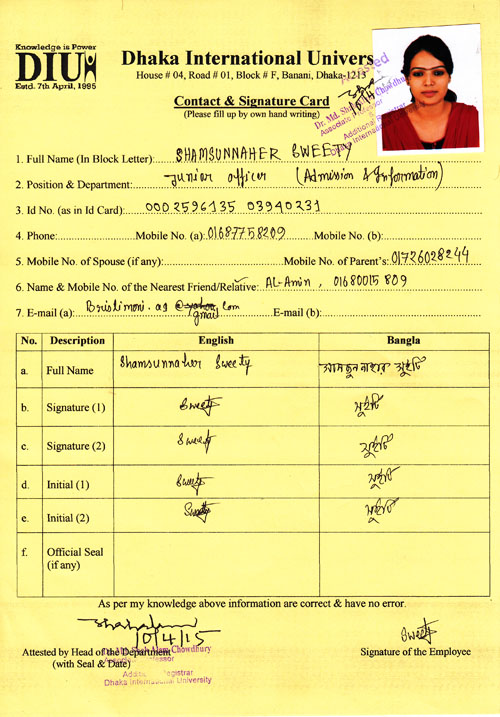 Knowledge is Power
DIU
Estd. 7th April, 1995
Dhaka International Univers
House # 04, Road # 01, Block # F, Banani, Dhaka-1213
Contact & Signature Card
(Please fill up by own hand writing)
10/4
Dr. Md. Chowdhury
Associate Professor
Additional Registrar
Dhaka International
1. Full Name (In Block Letter): SHAMSUNNAHER SWEETY
2. Position & Department: Junior officer (Admission & Information)
3. Id No. (as in Id Card): 0002596135 03940231
4. Phone: Mobile No. (a): 01687758209 Mobile No. (b):
5. Mobile No. of Spouse (if any): Mobile No. of Parent's: 01726028244
6. Name & Mobile No. of the Nearest Friend/Relative: AL-Amin, 01680015809
7. E-mail (a): Bristimoni.ag @ yahoo.com E-mail (b):
gmail
No. Description English Bangla
a. Full Name Shamsunnaher Sweety সামছুননাহার সুইটি
b. Signature (1) Sweety সুইটি
c. Signature (2) Sweety সুইটি
d. Initial (1) Sweety সুইটি
e. Initial (2) Sweety সুইটি
f. Official Seal (if any)
As per my knowledge above information are correct & have no error.
10/4/15
Sweety
Attested by Head of the Department
(with Seal & Date)
Signature of the Employee
Alam Chowdhury
Associate Professor
Additional Registrar
Dhaka International University